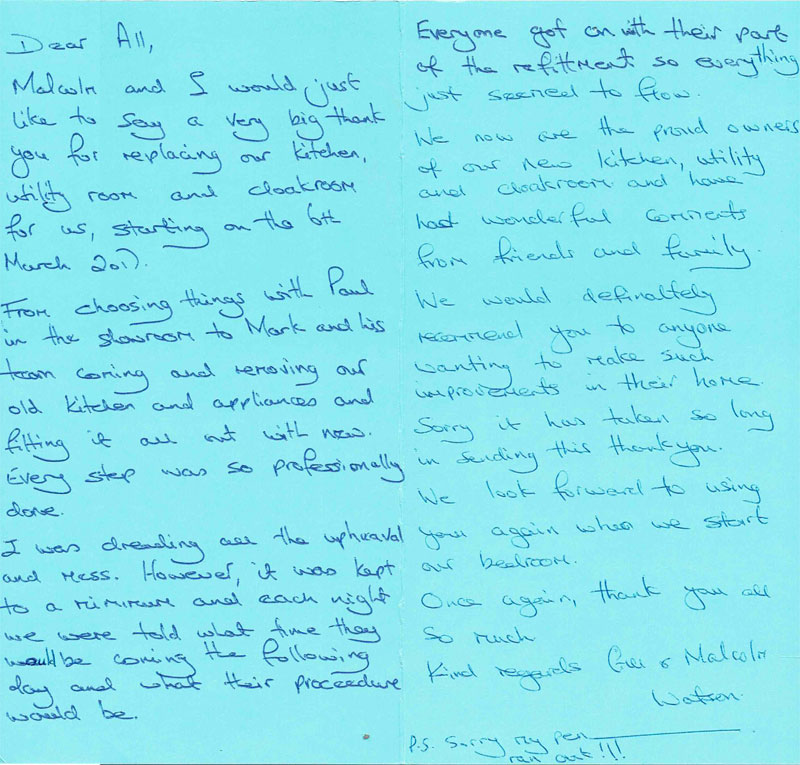 Dear All,
Malcolm and I would just
like to say a very big thank
you for replacing our kitchen,
utility room and cloakroom
for us, starting on the 6th
March 2017.
From choosing things with Paul
in the showroom to Mark and his
team coming and removing our
old kitchen and appliances and
fitting it all out with new.
Every step was so professionally
done.
I was dreading all the upheaval
and mess. However, it was kept
to a minimum and each night
we were told what time they
would be coming the following
day and what their proceedure
would be.
Everyone got on with their part
of the refittment so everything
just seemed to flow.
We now are the proud owners
of our new kitchen, utility
and cloakroom and have
had wonderful comments
from friends and family.
We would definaltely
recommend you to anyone
wanting to make such
improvements in their home.
Sorry it has taken so long
in sending this thankyou.
We look forward to using
you again when we start
our bedroom.
Once again, thank you all
so much
Kind regards Gill & Malcolm
Watson.
P.S. Sorry my pen
ran out!!!